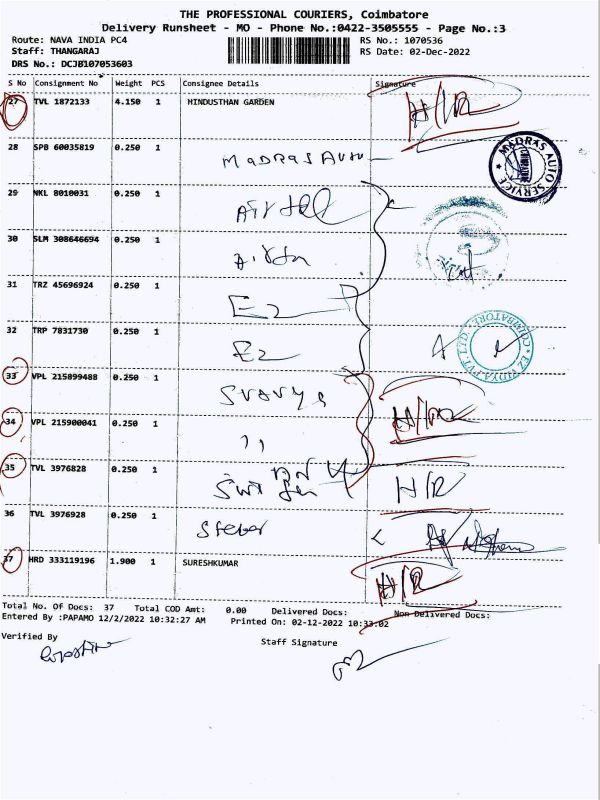 THE PROFESSIONAL COURIERS, Coimbatore
Delivery Runsheet - MO - Phone No.:0422-3505555 - Page No.:3
Route: NAVA INDIA PC4 RS No.: 1070536
Staff: THANGARAJ RS Date: 02-Dec-2022
DRS No.: DCJB107053603
S No Consignment No Weight PCS Consignee Details Signature
27 TVL 1872133 4.150 1 HINDUSTHAN GARDEN H/R
28 SPB 60035819 0.250 1 MADRAS Auto MADRAS AUTO SERVICE
29 NKL 8010031 0.250 1 Airtel
30 SLM 308646694 0.250 1 Airtel
31 TRZ 45696924 0.250 1 EZ
32 TRP 7831730 0.250 1 EZ EZ VIDYA PVT. LTD. COIMBATORE
33 VPL 215899488 0.250 1
34 VPL 215900041 0.250 1 ,,
35 TVL 3976828 0.250 1 H/R
36 TVL 3976928 0.250 1
37 HRD 333119196 1.900 1 SURESHKUMAR H/R
Total No. Of Docs: 37 Total COD Amt: 0.00 Delivered Docs: Non Delivered Docs:
Entered By :PAPAMO 12/2/2022 10:32:27 AM Printed On: 02-12-2022 10:33:02
Verified By Staff Signature